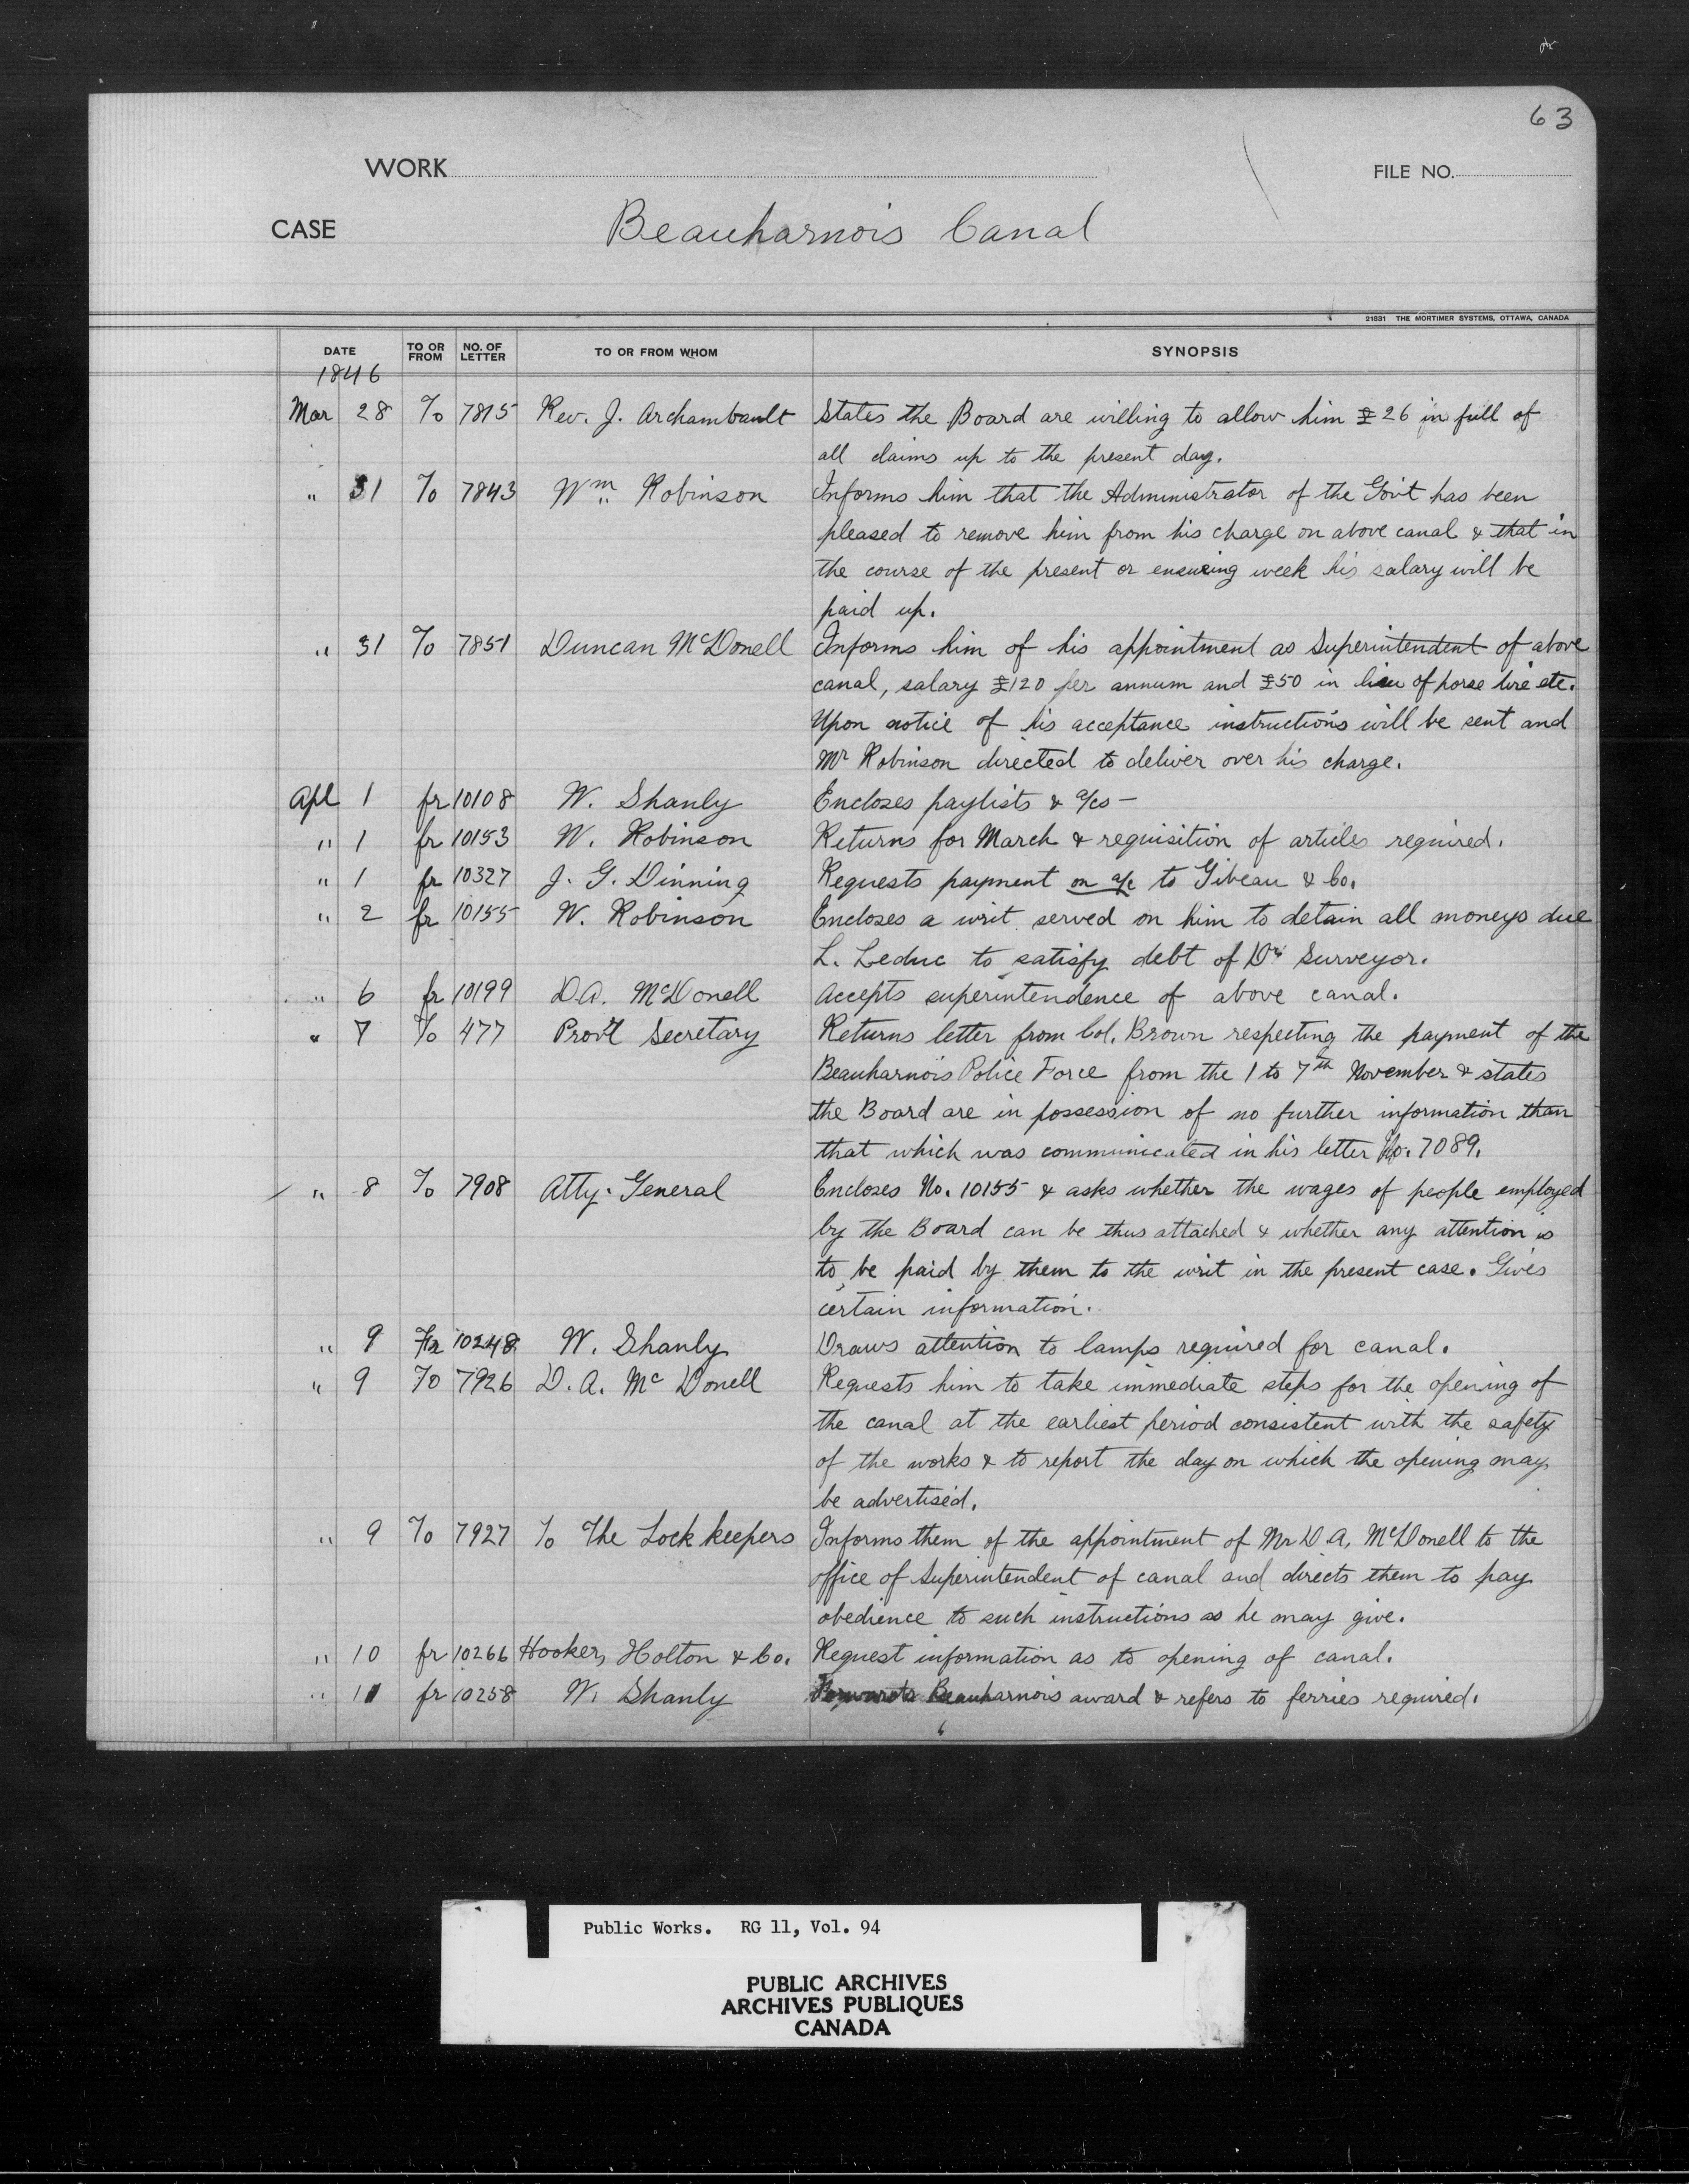 63
WORK
FILE NO.
CASE
Beauharnois Canal
21831 THE MORTIMER SYSTEMS, OTTAWA, CANADA
DATE TO OR FROM NO. OF LETTER TO OR FROM WHOM SYNOPSIS
1846
Mar 28 To 7815 Rev. J. Archambault States the Board are willing to allow him £26 in full of
all claims up to the present day.
" 31 To 7843 Wm Robinson Informs him that the Administrator of the Gov't has been
pleased to remove him from his charge on above canal & that in
the course of the present or ensueing week his salary will be
paid up.
" 31 To 7851 Duncan McDonell Informs him of his appointment as Superintendent of above
canal, salary £120 per annum and £50 in lieu of horse hire etc.
Upon notice of his acceptance instructions will be sent and
Mr Robinson directed to deliver over his charge.
Apl 1 fr 10108 W. Shanly Encloses paylists & a/cs —
" 1 fr 10153 W. Robinson Returns for March & requisition of articles required.
" 1 fr 10327 J. G. Dinning Requests payment on a/c to Gibeau & Co.
" 2 fr 10155 W. Robinson Encloses a writ served on him to detain all moneys due
L. Leduc to satisfy debt of Surveyor.
" 6 fr 10199 D.A. McDonell Accepts superintendence of above canal.
" 7 To 477 Prov'l Secretary Returns letter from Col. Brown respecting the payment of the
Beauharnois Police Force from the 1 to 7th November & states
the Board are in possession of no further information than
that which was communicated in his letter No. 7089.
" 8 To 7908 Atty. General Encloses No. 10155 & asks whether the wages of people employed
by the Board can be thus attached & whether any attention is
to be paid by them to the writ in the present case. Gives
certain information.
" 9 Fr 10248 W. Shanly Draws attention to lamps required for canal.
" 9 To 7926 D. A. Mc Donell Requests him to take immediate steps for the opening of
the canal at the earliest period consistent with the safety
of the works & to report the day on which the opening may
be advertised.
" 9 To 7927 To The Lock keepers Informs them of the appointment of Mr D A. McDonell to the
office of Superintendent of canal and directs them to pay
obedience to such instructions as he may give.
" 10 fr 10266 Hooker, Holton & Co. Request information as to opening of canal.
" 11 fr 10258 W. Shanly Forwards Beauharnois award & refers to ferries required.
Public Works. RG 11, Vol. 94
PUBLIC ARCHIVES
ARCHIVES PUBLIQUES
CANADA